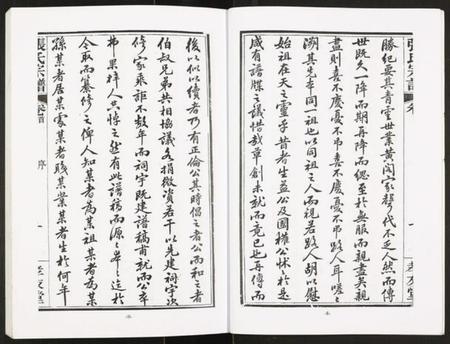 張氏宗譜
卷
勝紀要其青雲世業黄閣家聲代不乏人然而傳
世既久一降而期再降而緦至於無服而親盡矣親
盡則喜不慶憂不弔喜不慶憂不弔路人耳嗟嗟
溯其先本同一祖也以同祖之人而視若路人胡以慰
始祖在天之靈乎昔者生益公及國權公怵於是
咸有譜牒之議惜哉草創未就而竟已也再傳而
後以似以續者乃有正倫公其時倡之者公而和之者
伯叔兄弟共相協議各捐微資若干以先建祠宇次
修家乘詎不数年而祠宇既建譜稿甫就而公卒
弗果梓人只惜之然有此譜稿而源源畢達於
今取而纂修之俾人知某者為某祖某者為某
孫某者居某處某者賤某業某者生於何年
張氏宗譜
卷首
序
一
孝友堂